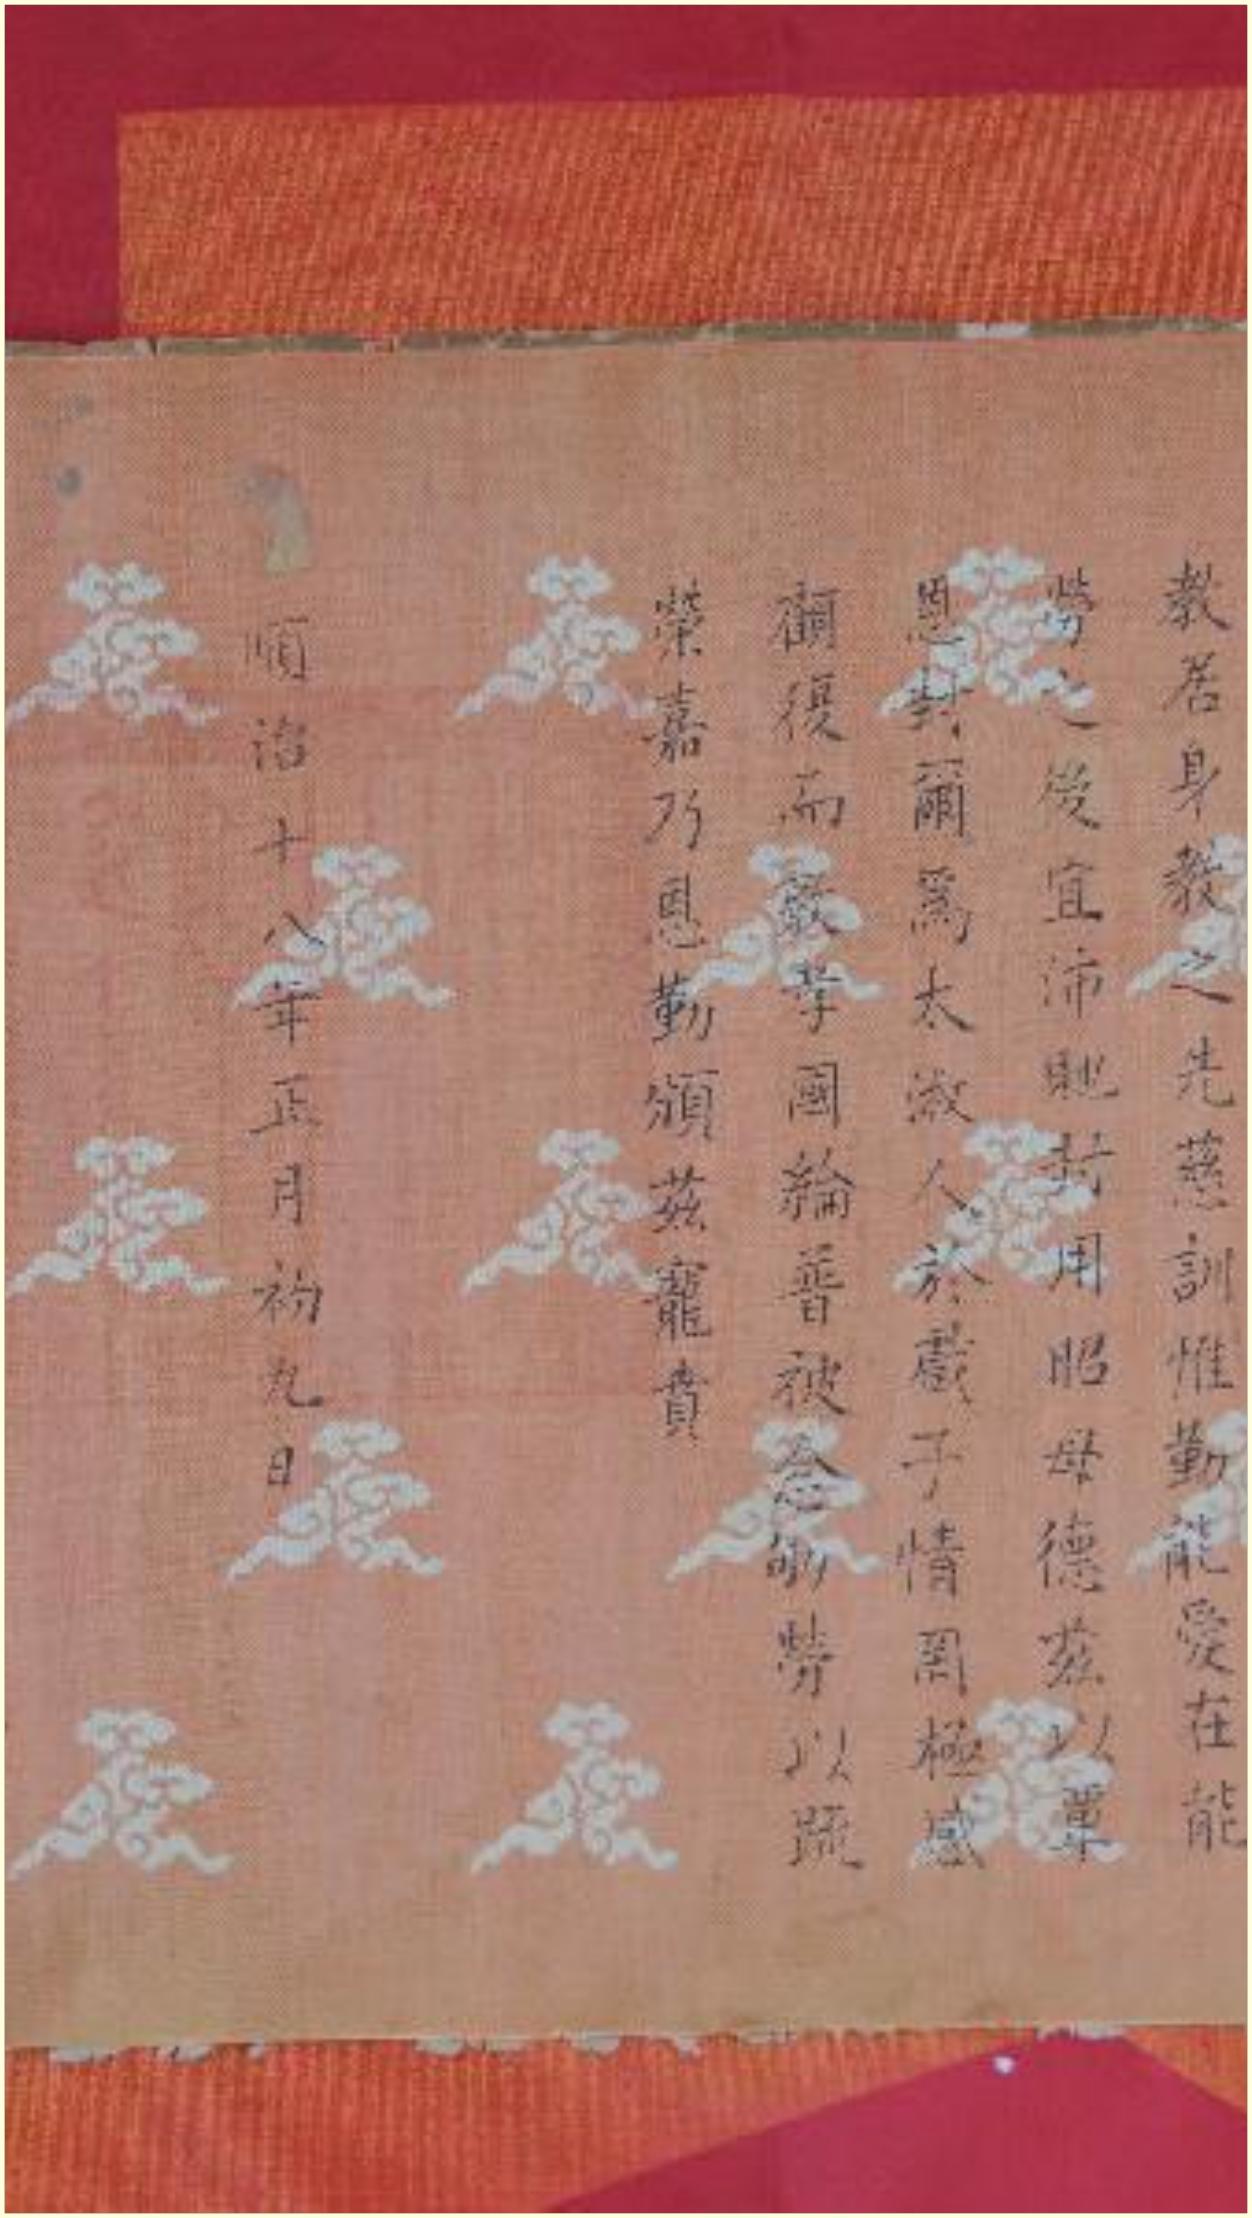 教居身教之先慈訓惟勤能愛在能
勞之後宜沛貤封用昭母德茲以覃
恩封爾爲太淑人於戲子情罔極感
顧復而國綸普被念劬勞以疏
榮嘉乃恩勤頒茲寵賁
順治十八年正月初九日